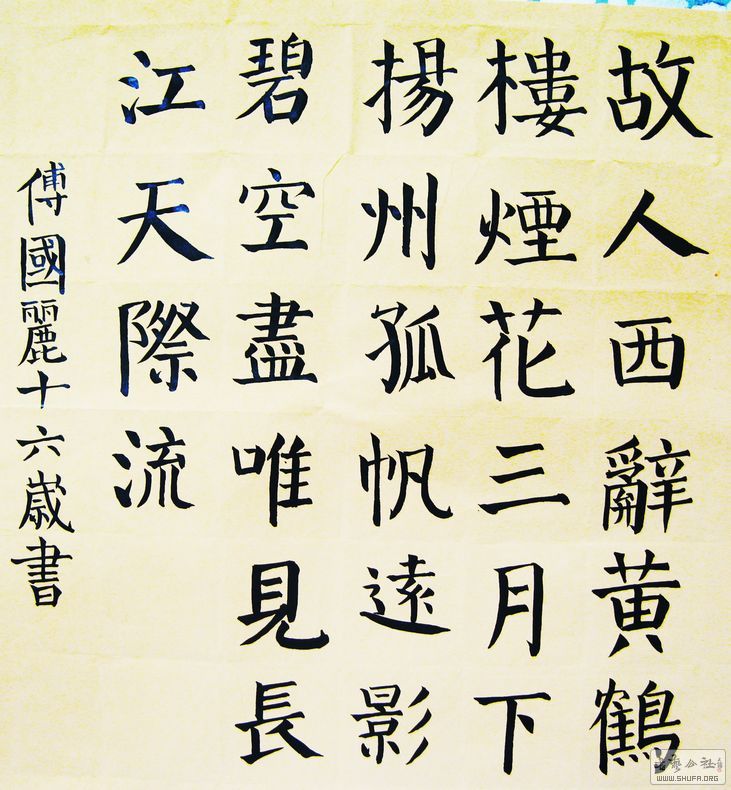 故人西辭黄鶴
樓煙花三月下
揚州孤帆遠影
碧空盡唯見長
江天際流
傅國麗十六歲書
WWW.SHUFA.ORG